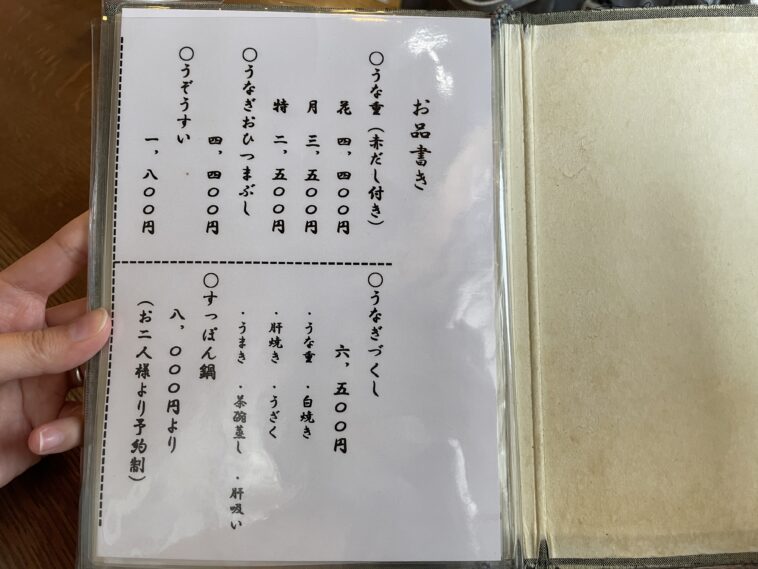 お品書き
〇うな重（赤だし付き）
花 四，四〇〇円
月 三，五〇〇円
特 二，五〇〇円
〇うなぎおひつまぶし
四，四〇〇円
〇うぞうすい
一，八〇〇円
〇うなぎづくし
六，五〇〇円
・うな重 ・白焼き
・肝焼き ・うざく
・うまき ・茶碗蒸し ・肝吸い
〇すっぽん鍋
八，〇〇〇円より
（お二人様より予約制）